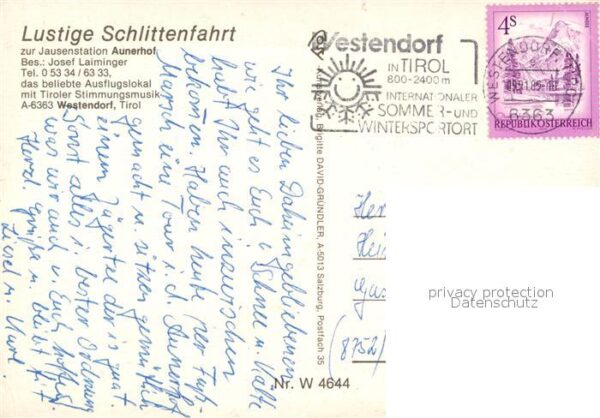 Lustige Schlittenfahrt
zur Jausenstation Aunerhof
Bes.: Josef Laiminger
Tel. 0 53 34 / 63 33,
das beliebte Ausflugslokal
mit Tiroler Stimmungsmusik
A-6363 Westendorf, Tirol
Westendorf
IN TIROL
800-2400 m
INTERNATIONALER
SOMMER- UND
WINTERSPORTORT
4 S
REPUBLIK ÖSTERREICH
WESTENDORF
6363
Ihr lieben Daheimgebliebenen
wie geht es Euch? Schnee u. Kälte
habt Ihr auch inzwischen
bekommen. Haben heute per Fuß-
Marsch eine Tour z. d. Aunerhof
gemacht u. sitzen gemütlich
b. einem Jägertee der ist gut.
Sonst alles in bester Ordnung
was wir auch v. Euch hoffen.
Herzl. Grüße u. bleibt fit
Liesel u. Karl
Brigitte DAVID-GRÜNDLER, A-5013 Salzburg, Postfach 35
Nr. W 4644
(8752)
privacy protection
Datenschutz